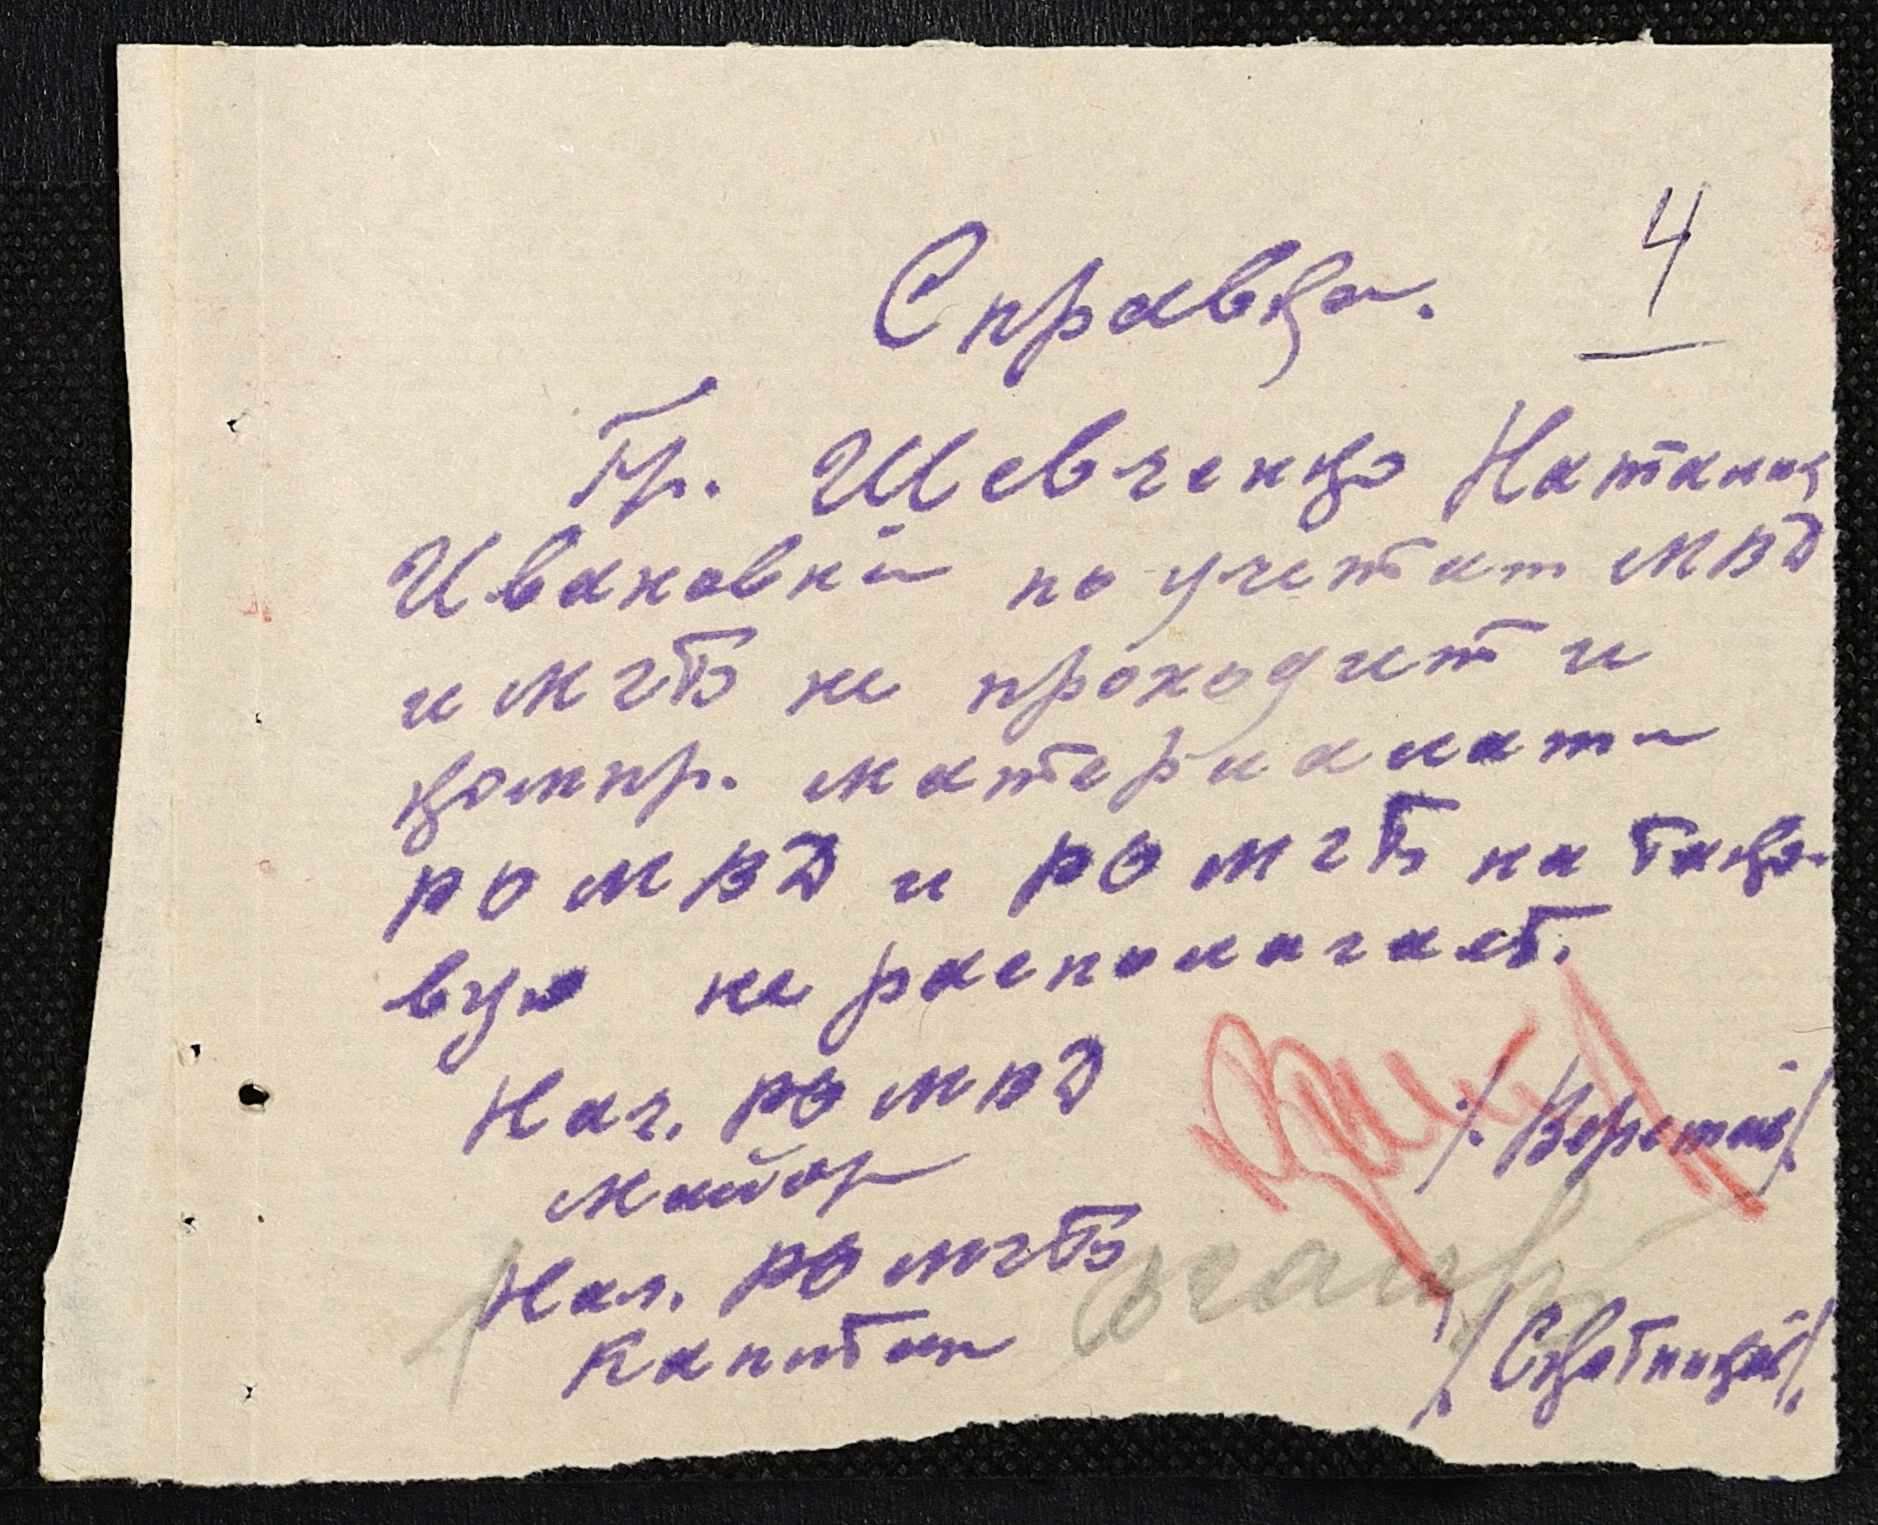 4
Справка.
Гр. Шевченко Наталия
Ивановна по учетам МВД
и МГБ не проходит и
компр. материалами
РО МВД и РО МГБ на тако-
вую не располагает.
Нач. РО МВД
майор
Нач. РО МГБ
Капитан